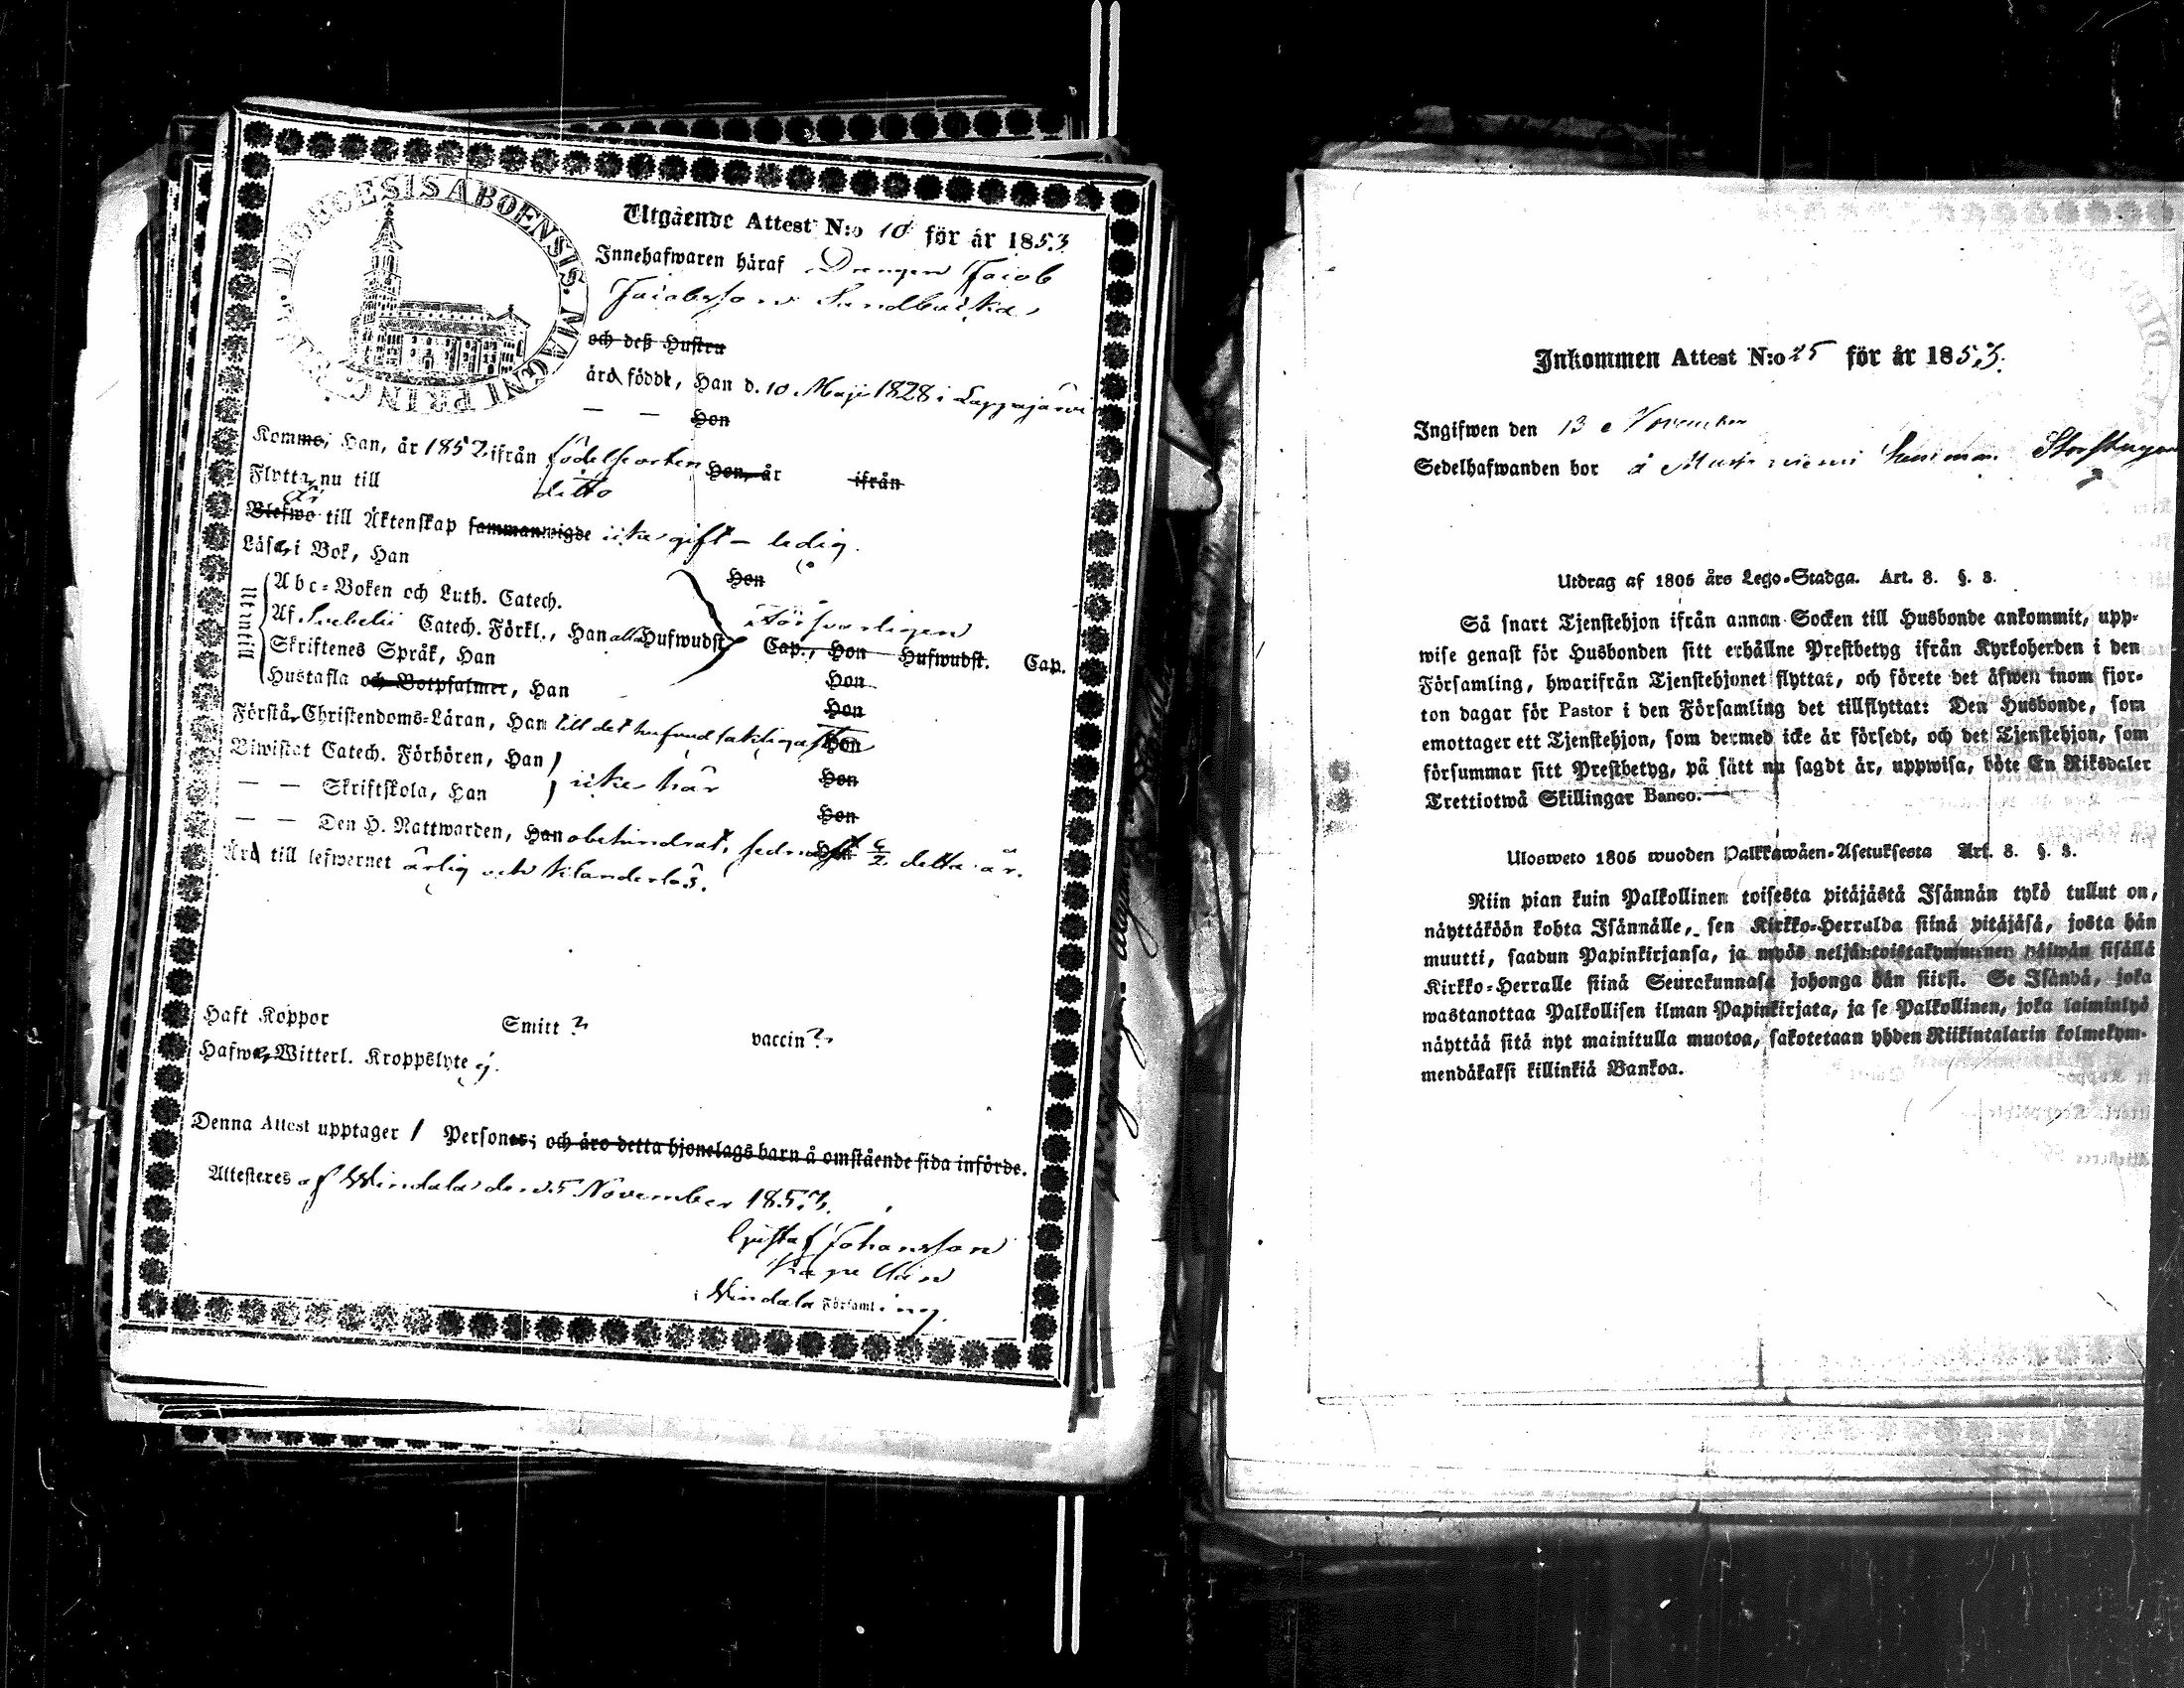 DIOECESIS ABOENSIS. MAGNI PRINC.
Utgående Attest N:o 10 för år 1853
Innehafwaren häraf Drengen Jacob
Jacobsson Sandbacka
och deß Hustru
ära född, Han d. 10 Maji 1828 i Lappajärvi
— — Hon
Kommo, Han, år 1852 ifrån födelseorten Hon, år ifrån
Flytta, nu till ditto
är
Blefwo till Äktenskap sammanwigde icke gift - ledig.
Läsa, i Bok, Han Hon
Utantill
Abc-Boken och Luth. Catech. Försvarligen
Af Svebelii Catech. Förkl., Han alla Hufwudst. Cap., Hon Hufwudst. Cap.
Skriftenes Språk, Han Hon
Hustafla och Botpsalmer, Han Hon
Förstå, Christendoms-Läran, Han till det hufvudsakligaste Hon
Biwistat Catech. Förhören, Han Hon
— — Skriftskola, Han icke här Hon
— — Den H. Nattwarden, Han obehindrat, sednast 6/2 detta år.
Ära till lefwernet ärlig och klanderlös.
Haft Koppor Smitt ? vaccin ?
Hafwa, Witterl. Kroppslyte ej.
Denna Attest upptager 1 Personer; och äro detta hjonelags barn å omstående sida införde.
Attesteres af Windala den 5 November 1853.
Gustaf Johansson
Kapellan
i Windala Församling.
Inkommen Attest N:o 25 för år 1853.
Ingifwen den 13 November
Sedelhafwanden bor å
Utdrag af 1805 års Lego-Stadga. Art. 8. §. 8.
Så snart Tjenstehjon ifrån annan Socken till Husbonde ankommit, upp-
wise genast för Husbonden sitt erhållne Prestbetyg ifrån Kyrkoherden i den
Församling, hwarifrån Tjenstehjonet flyttat, och förete det äfwen inom fjor-
ton dagar för Pastor i den Församling det tillflyttat: Den Husbonde, som
emottager ett Tjenstehjon, som dermed icke är försedt, och det Tjenstehjon, som
försummar sitt Prestbetyg, på sätt nu sagdt är, uppwisa, böte En Riksdaler
Trettiotwå Skillingar Banco.—
Ulosweto 1805 wuoden Palkkawäen-Asetuksesta Art. 8. §. 8.
Niin pian kuin Palkollinen toisesta pitäjästä Isännän tykö tullut on,
näyttäköön kohta Isännälle, sen Kirkko-Herralda siinä pitäjäsä, josta hän
muutti, saadun Papinkirjansa, ja myös neljäntoistakymmenen päiwän sisällä
Kirkko-Herralle siinä Seurakunnasa johonga hän siirsi. Se Isändä, joka
wastanottaa Palkollisen ilman Papinkirjata, ja se Palkollinen, joka laiminlyö
näyttää sitä nyt mainitulla muotoa, sakotetaan yhden Riikintalarin kolmekym-
mendäkaksi killinkiä Bankoa.